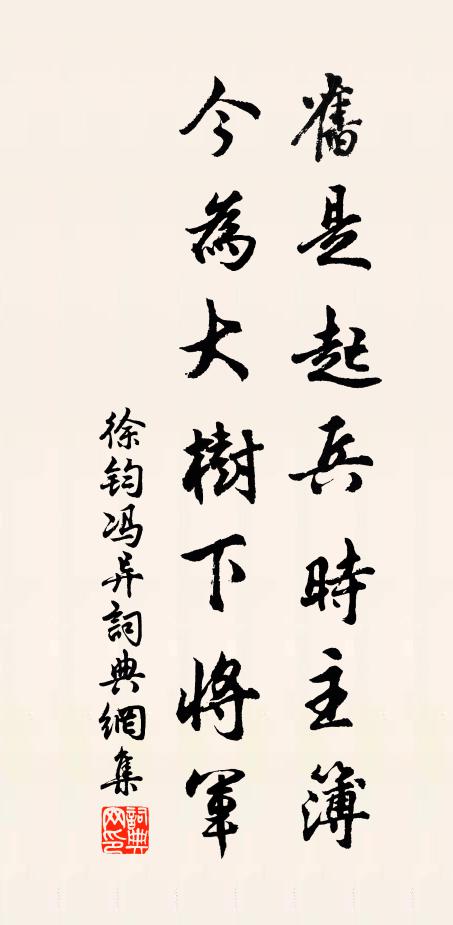 舊是起兵時主簿
今為大樹下將軍
徐鈞冯异詞典網集
詞典網印